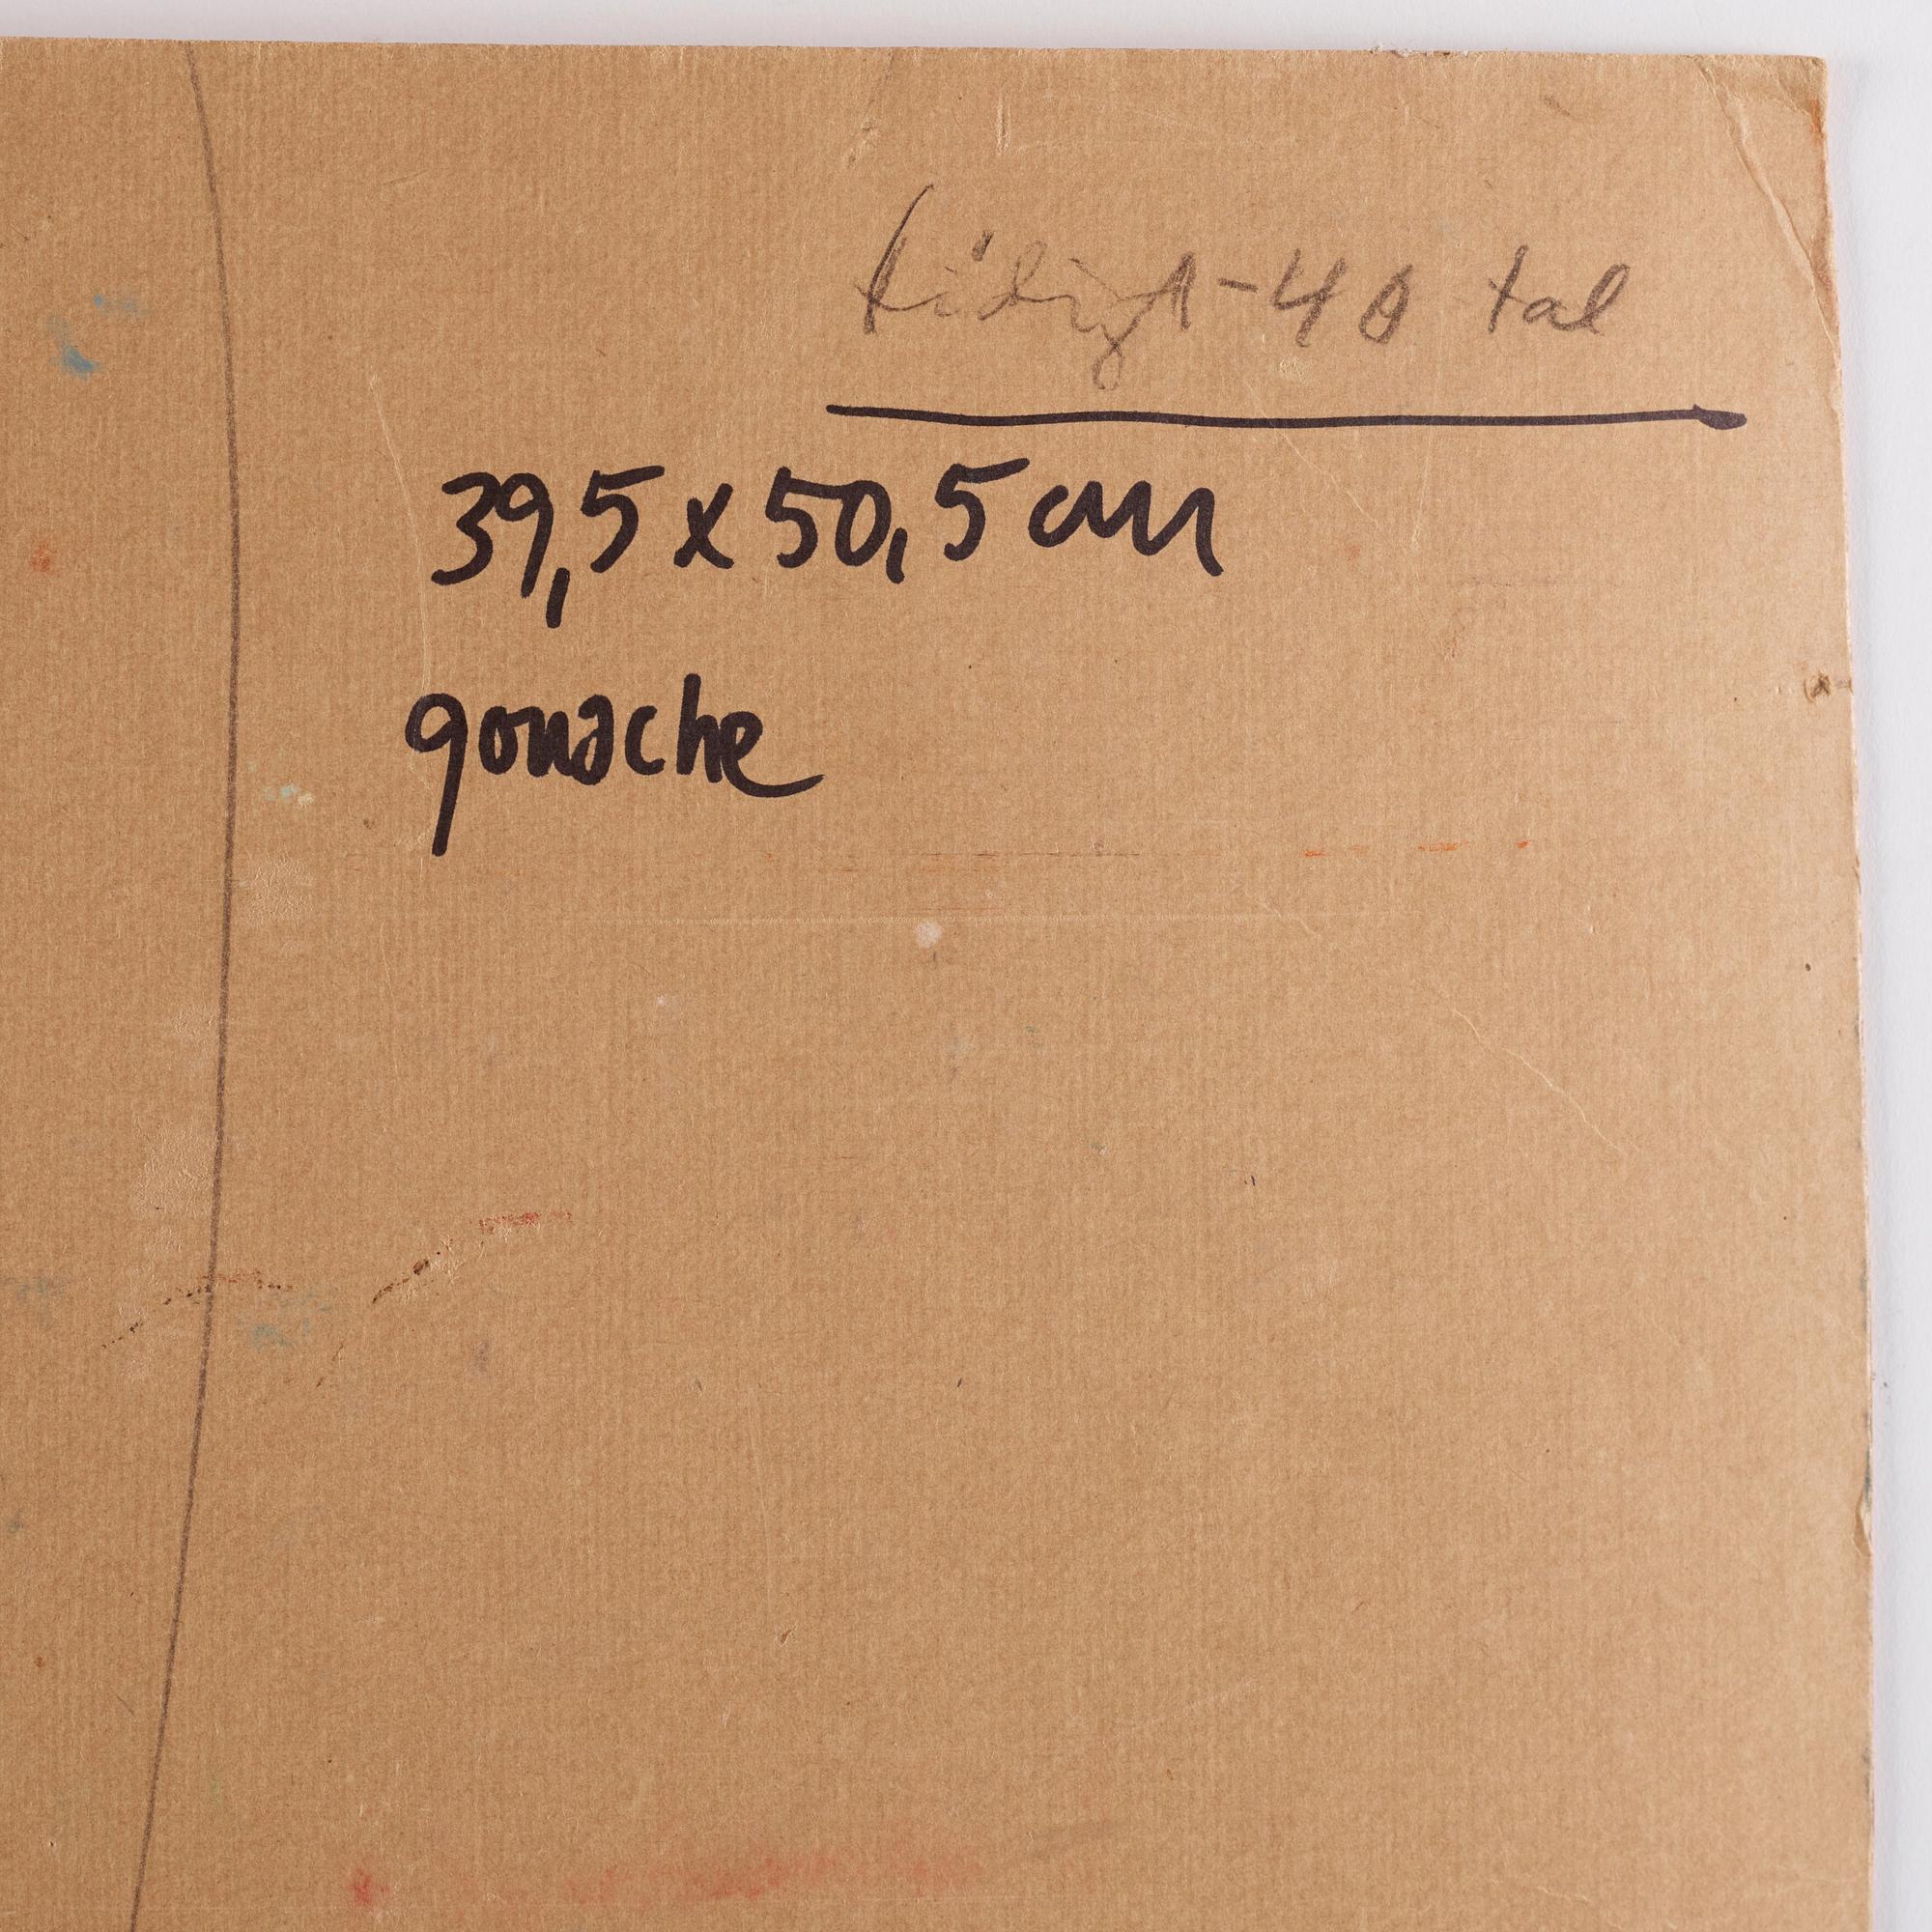 tidigt-40 tal
39,5 x 50,5 cm
gouache